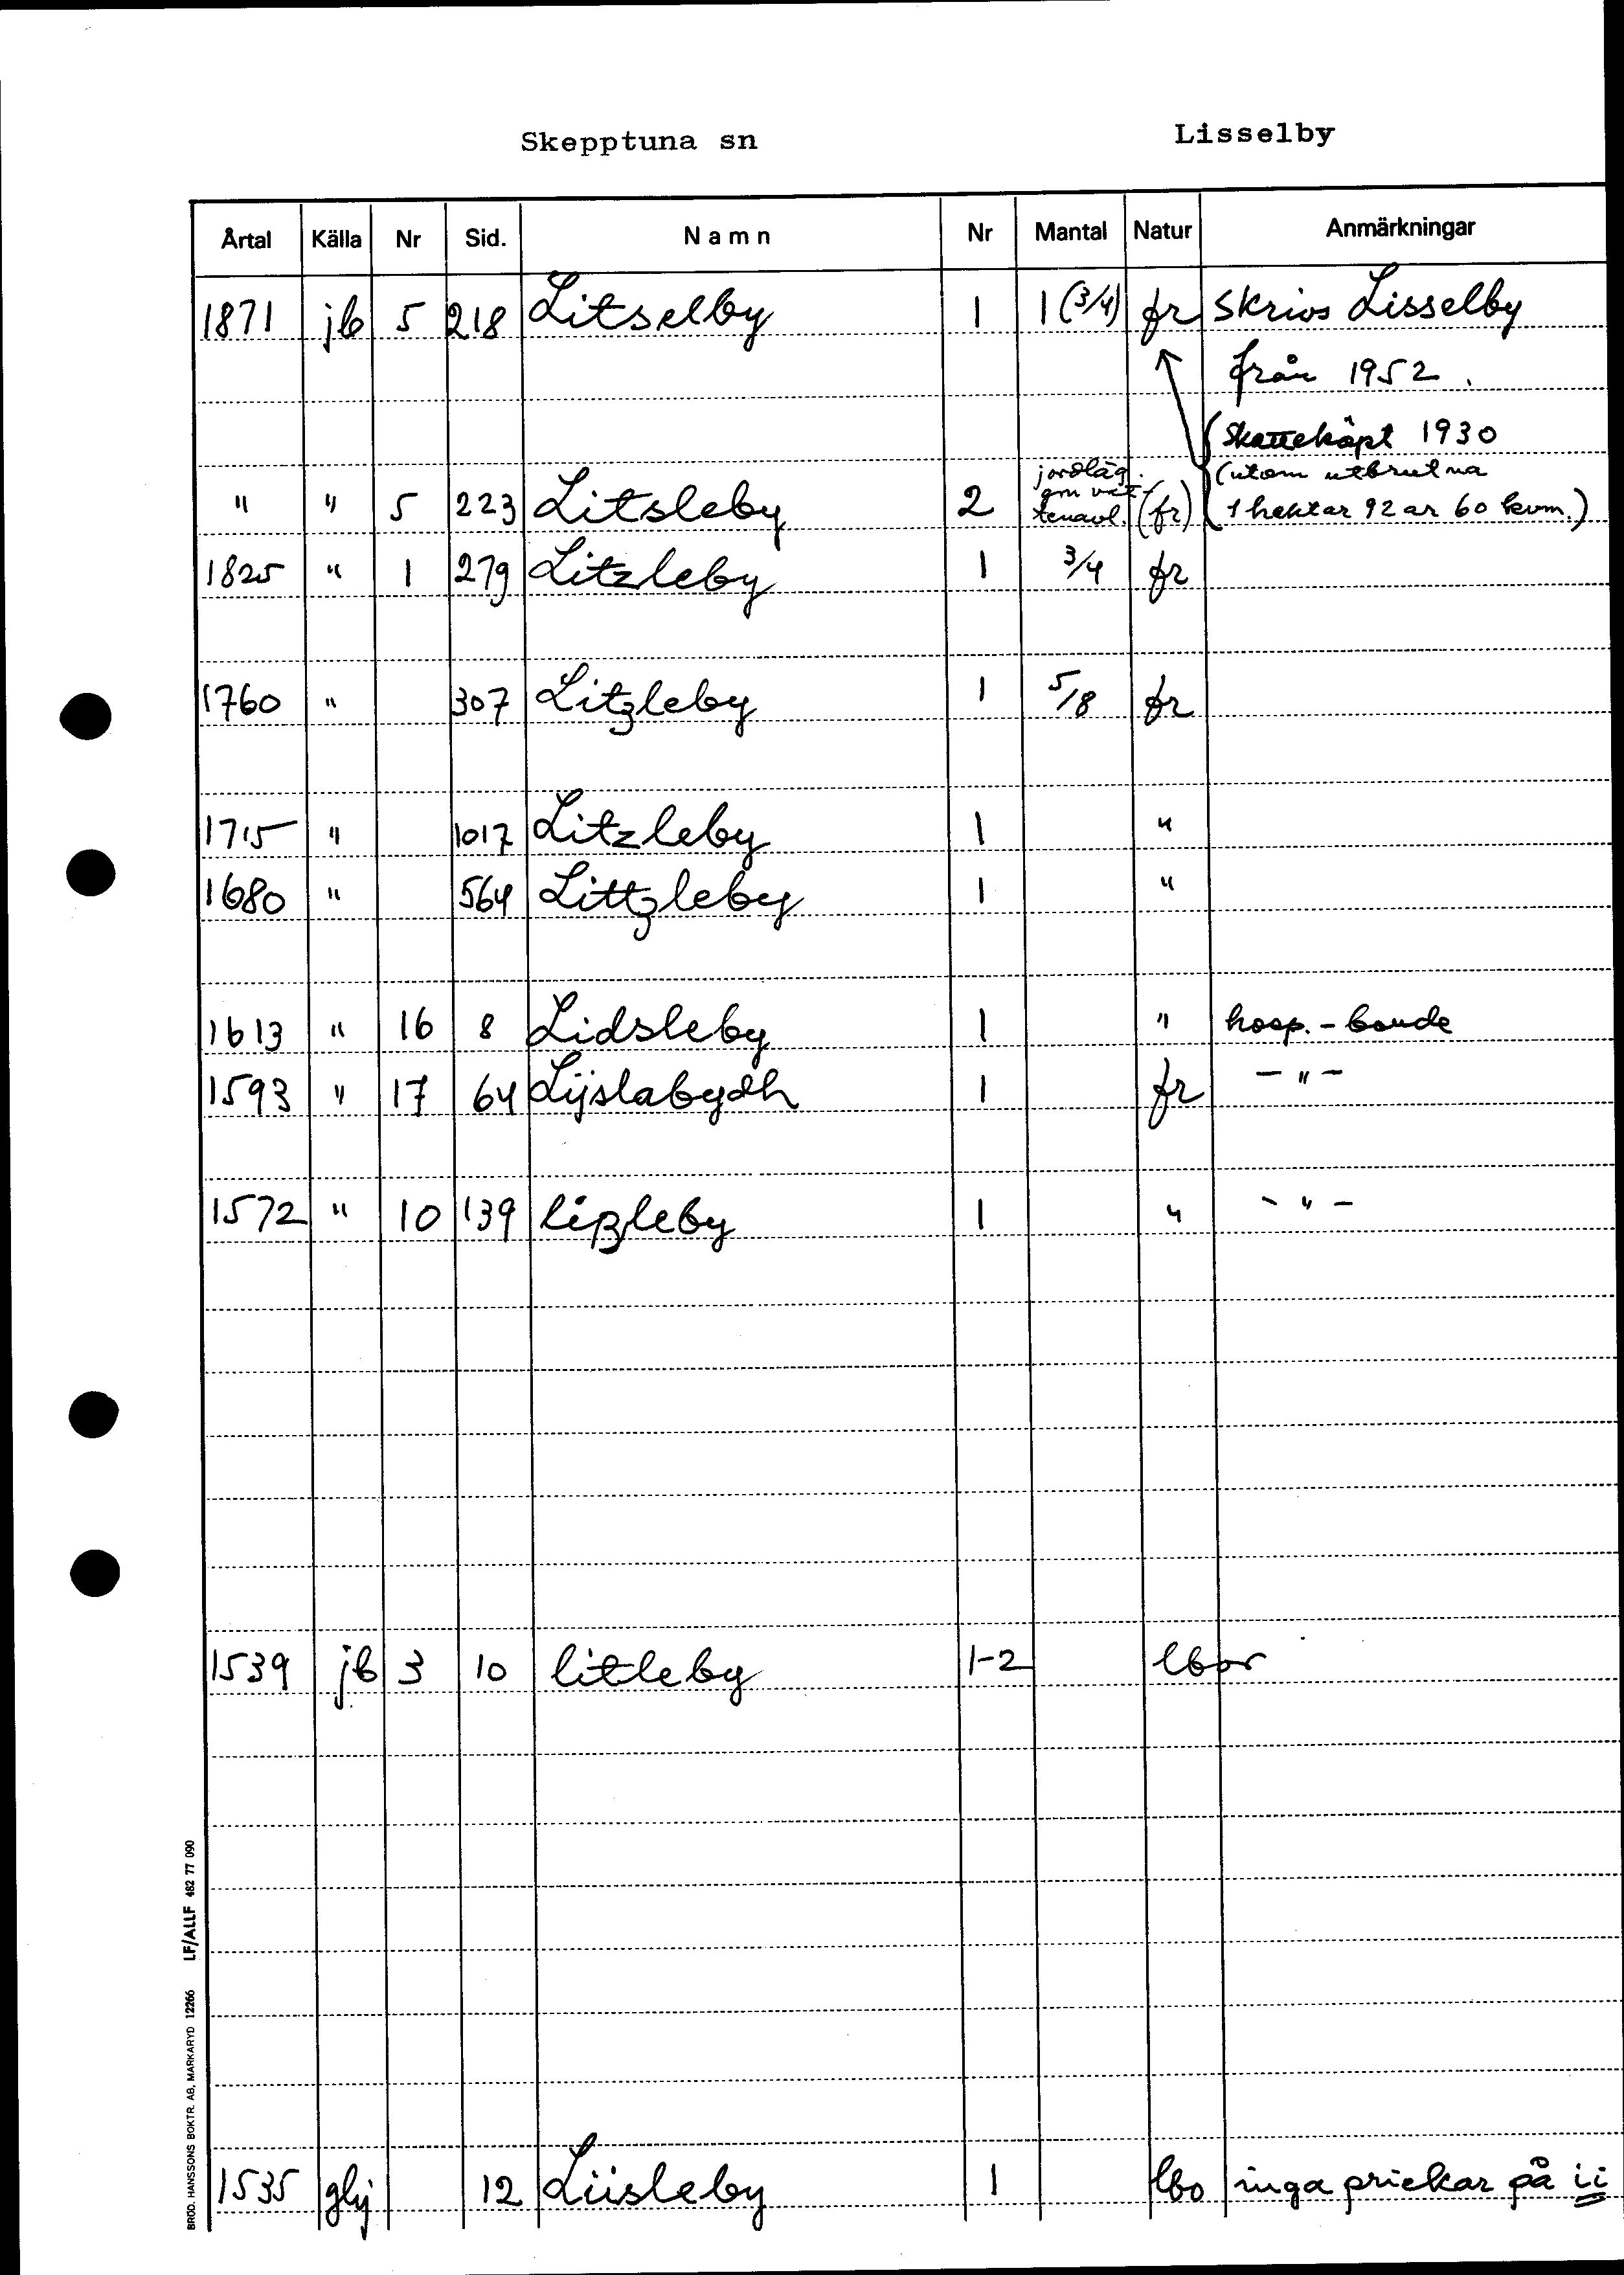 Skepptuna sn Lisselby
Årtal Källa Nr Sid. Namn Nr Mantal Natur Anmärkningar
1871 jb 5 218 Litselby 1 1 (3/4) fr skrivs Lisselby
från 1952.
(Skatteköpt 1930
(utom utbrutna
" " 5 223 Litsleby 2 jordläg. (fr) 1 hektar 92 ar 60 kvm.)
1825 " 1 279 Litzleby 1 3/4 fr
1760 " 307 Litzleby 1 5/8 fr
1715 " 1017 Litzleby 1 "
1680 " 564 Littzleby 1 "
1613 " 16 8 Lidsleby 1 " hosp.-bonde
1593 " 17 64 Lijslabydh 1 fr - " -
1572 " 10 139 lißleby 1 " - " -
1539 jb 3 10 litleby 1-2 lbor
1535 ghj 12 Liisleby 1 lbo inga prickar på ii
BRÖD. HANSSONS BOKTR. AB, MARKARYD 12266 LF/ALLF 482 77 090